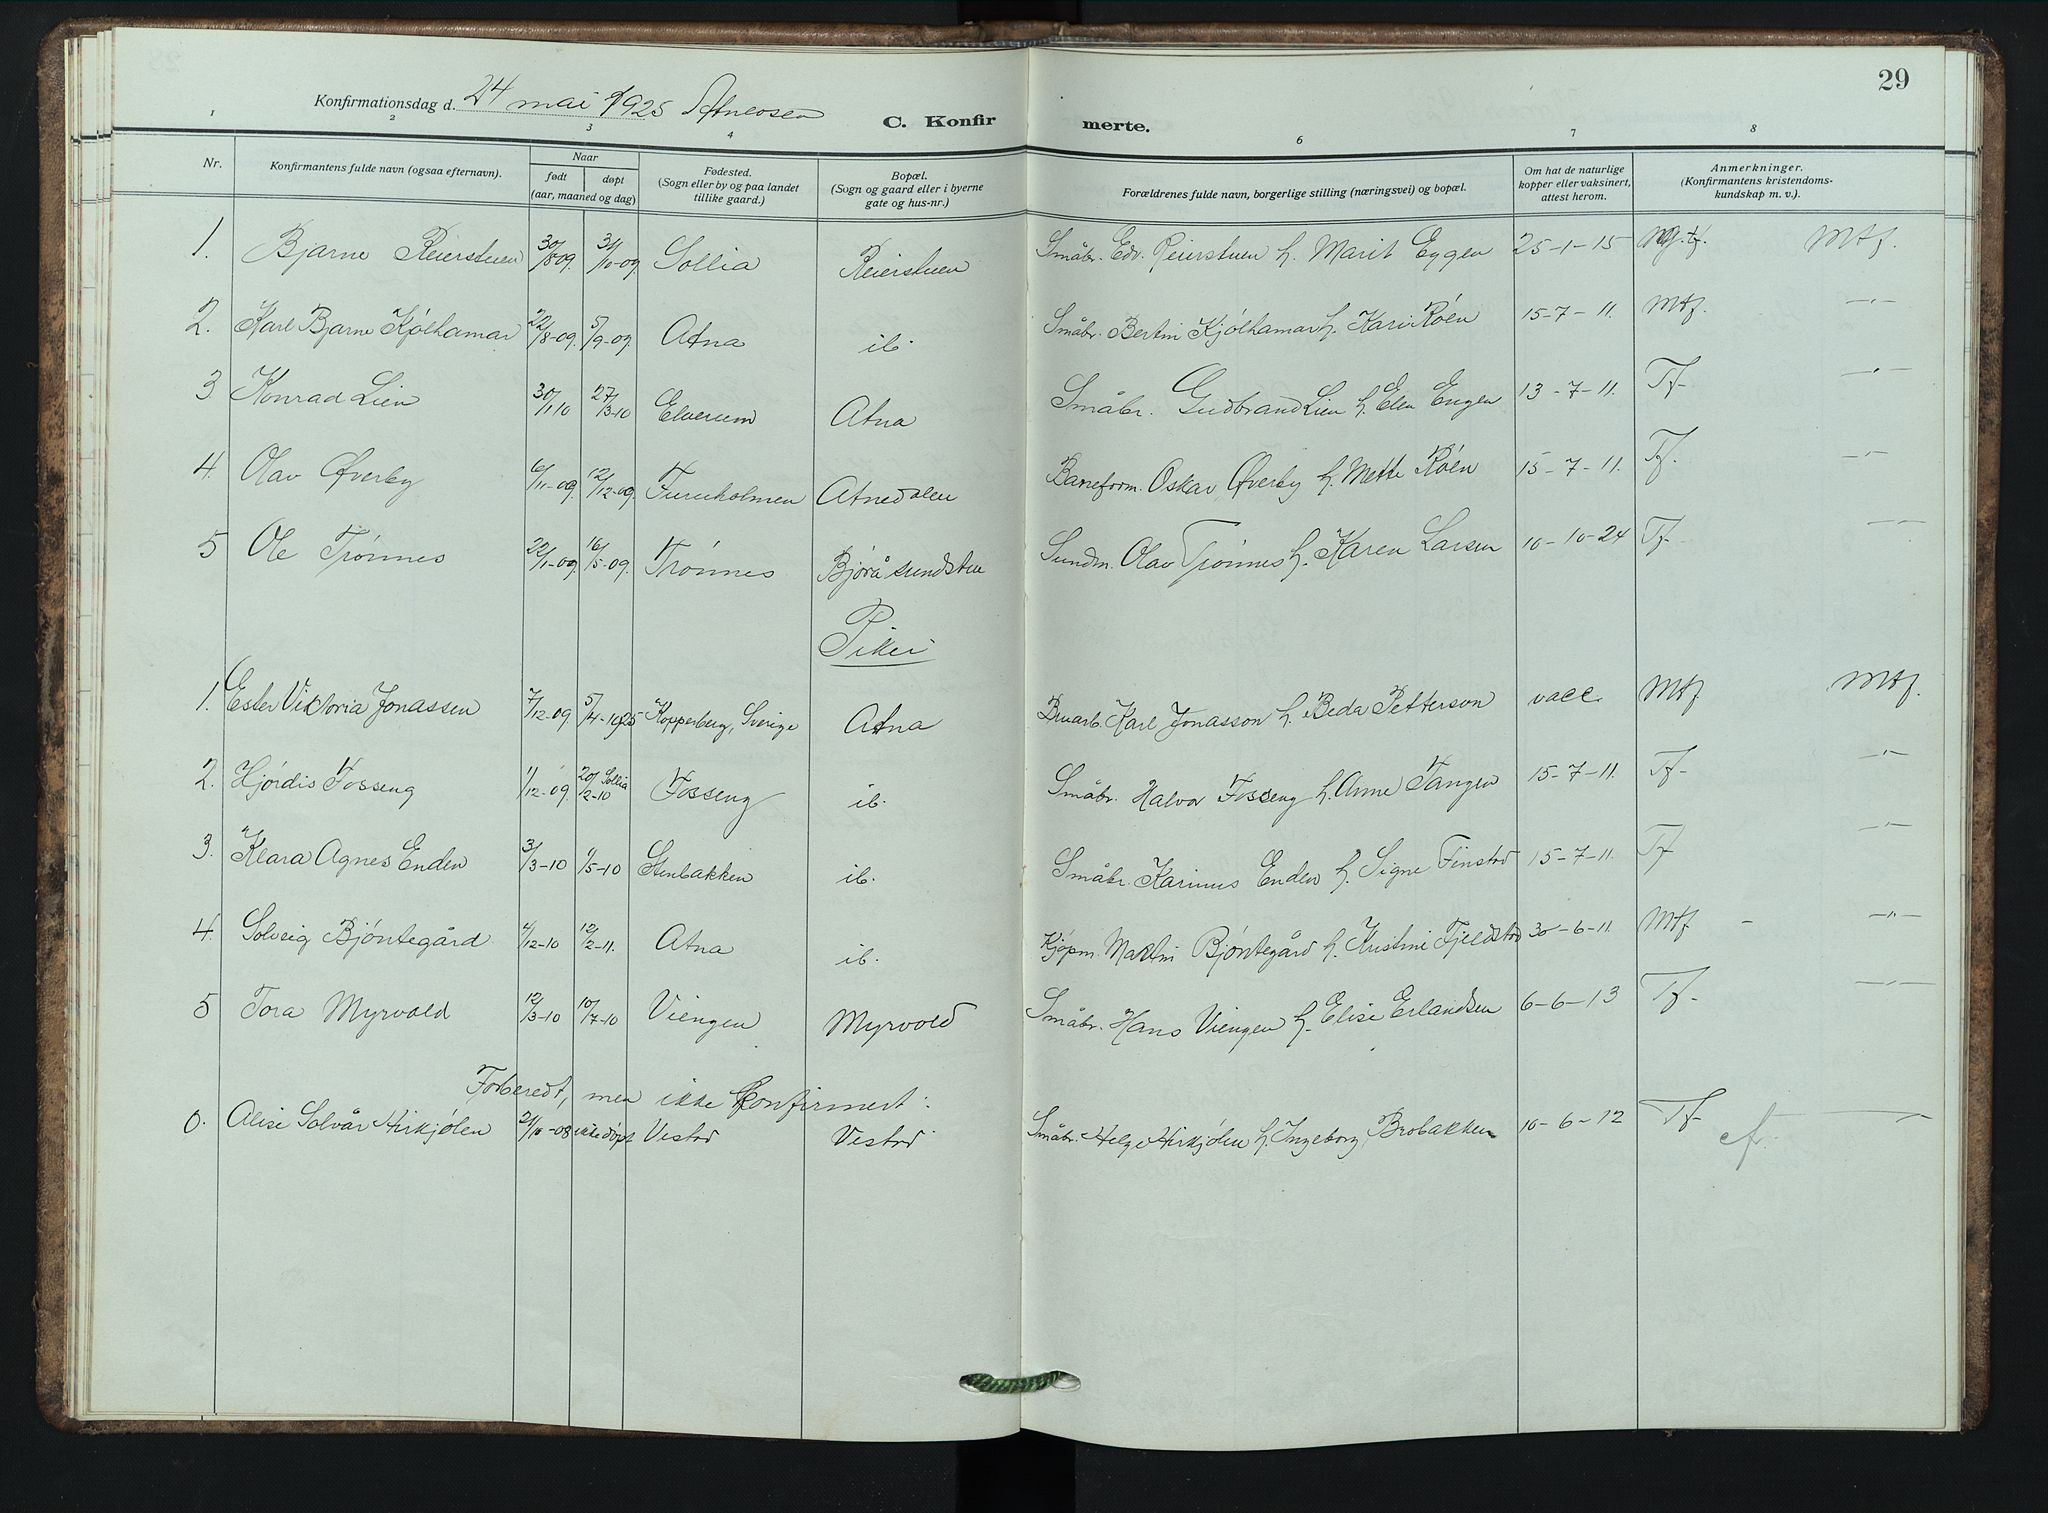 29
Konfirmationsdag d. 24 mai 1925 Atneosen
C. Konfir merte.
1 2 3 4 6 7 8
Nr.
Konfirmantens fulde navn (ogsaa efternavn).
Naar
født døpt
(aar, maaned og dag)
Fødested.
(Sogn eller by og paa landet
tillike gaard.)
Bopæl.
(Sogn og gaard eller i byerne
gate og hus-nr.)
Forældrenes fulde navn, borgerlige stilling (næringsvei) og bopæl.
Om hat de naturlige
kopper eller vaksinert,
attest herom.
Anmerkninger.
(Konfirmantens kristendoms-
kundskap m. v.).
1. Bjarne Reierstuen 30/8-09. 31/10-09 Sollia Reierstuen Småbr. Edv. Reierstuen h. Marit Eggen 25-1-15 Mg.tf. Mtf.
2. Karl Bjarne Kjølhamar 22/8-09. 5/9-09. Atna ib. Småbr. Bertin Kjølhamar h. Kari Røen 15-7-11. Mtf. —"—
3 Konrad Lien 30/1 10 27/3-10 Elverum Atna Småbr. Gudbrand Lien h. Elen Engen 13-7-11. Tf- —"—
4. Olav Øverby 6/11-09. 12/12-09. Furuholmen Atnedalen Baneform. Oskar Øverby h. Mette Røen 15-7-11. Tf. —"—
5 Ole Trønnes 22/1-09. 16/5-09. Trønnes Bjørå sundsten Sundm. Olav Trønnes h. Karen Larsen 10-10-24 Tf- —"—
Piker
1. Ester Viktoria Jonassen 7/12-09 5/4-1925 Kopperberg, Sverige Atna Bruarb. Karl Jonasson h. Beda Petterson vacc. Mtf Mtf.
2. Hjørdis Fosseng 1/12-09. 20/2-10 Sollia Fosseng ib. Småbr. Halvor Fosseng h. Anne Tangen 15-7-11. Tf- —"—
3. Klara Agnes Enden 3/3-10 1/5-10 Stenbakken ib. Småbr. Karinus Enden h. Signe Finstad 15-7-11. Tf —"—
4. Solveig Bjøntegård 4/12-10 12/2-11. Atna ib. Kjøpm. Martin Bjøntegård h. Kristine Fjeldstad 30-6-11. Mtf - —"—
5 Tora Myrvold 12/3-10 10/7-10 Viengen Myrvold Småbr. Hans Viengen h. Elise Erlandsen 6-6-13 Tf- —"—
Forberedt, men ikke konfirmert:
0. Alise Solvår Hirkjølen 21/10-08 ikke døpt Vestad Vestad Småbr. Helge Hirkjølen h. Ingeborg Brobakken 10-6-12 Tf- cf. —